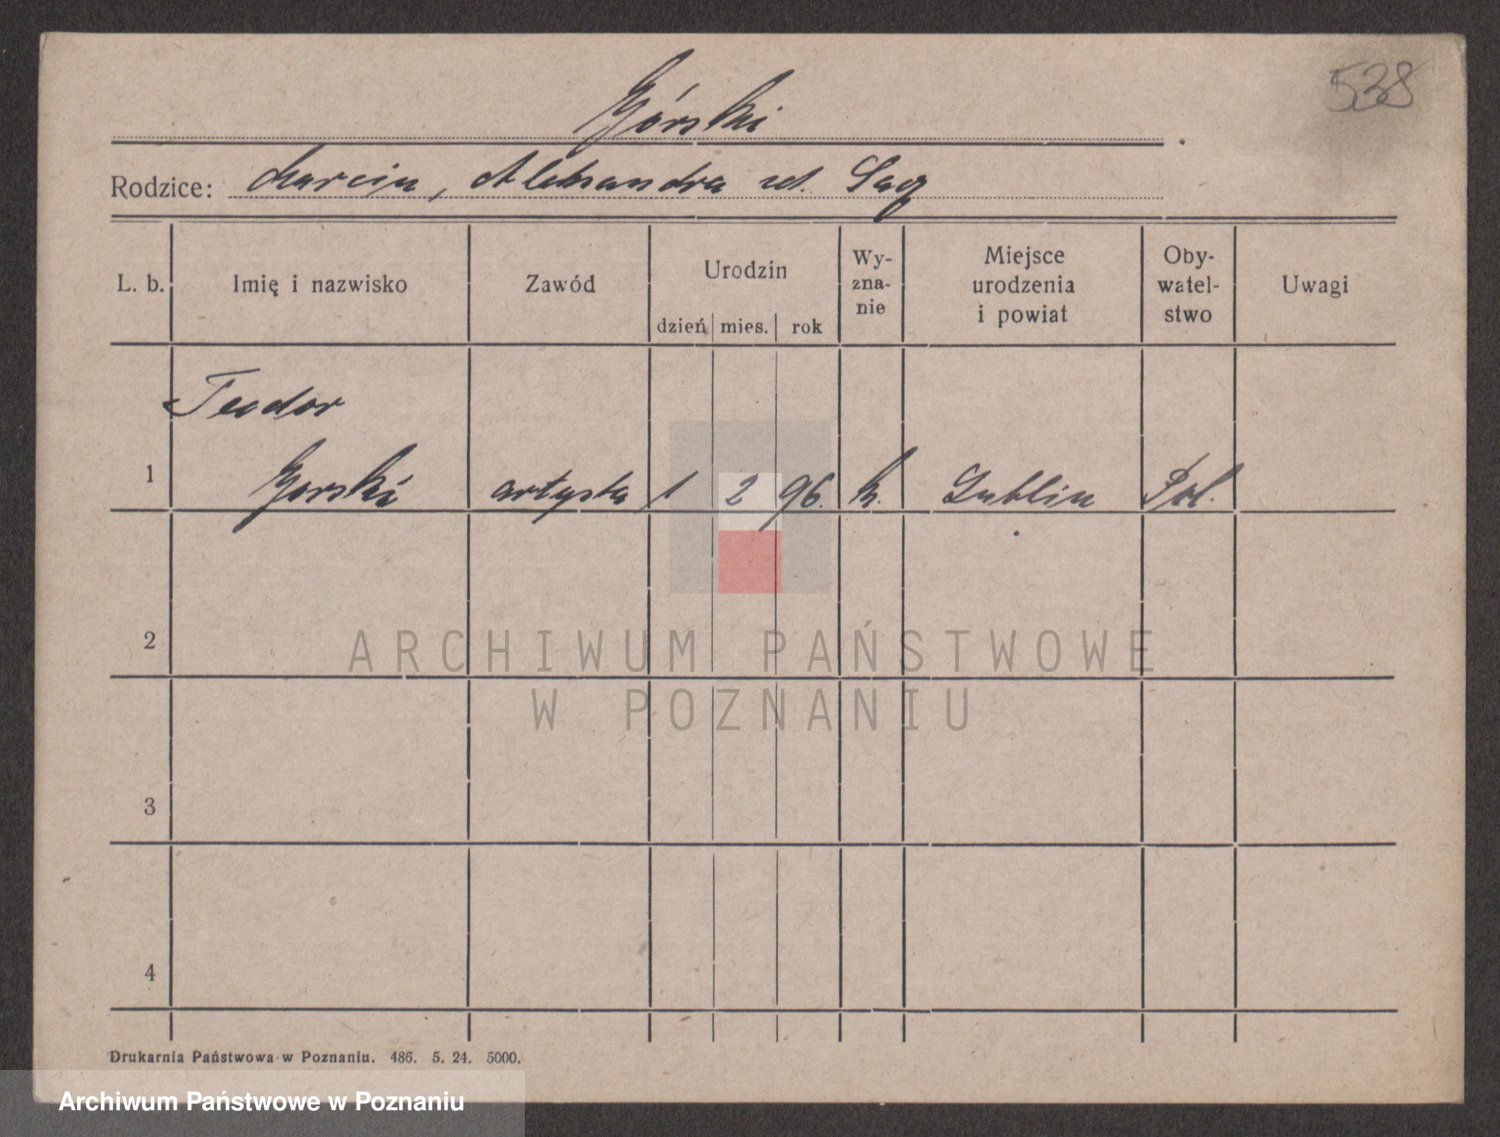 538
Górski
Rodzice: Marcin, Aleksandra zd.
L. b. Imię i nazwisko Zawód Urodzin dzień mies. rok Wy-zna-nie Miejsce urodzenia i powiat Oby-watel-stwo Uwagi
Teodor
1 Gorski artysta 1 2 96. k. Lublin Pol.
2
ARCHIWUM PAŃSTWOWE
W POZNANIU
3
4
Drukarnia Państwowa w Poznaniu. 486. 5. 24. 5000.
Archiwum Państwowe w Poznaniu